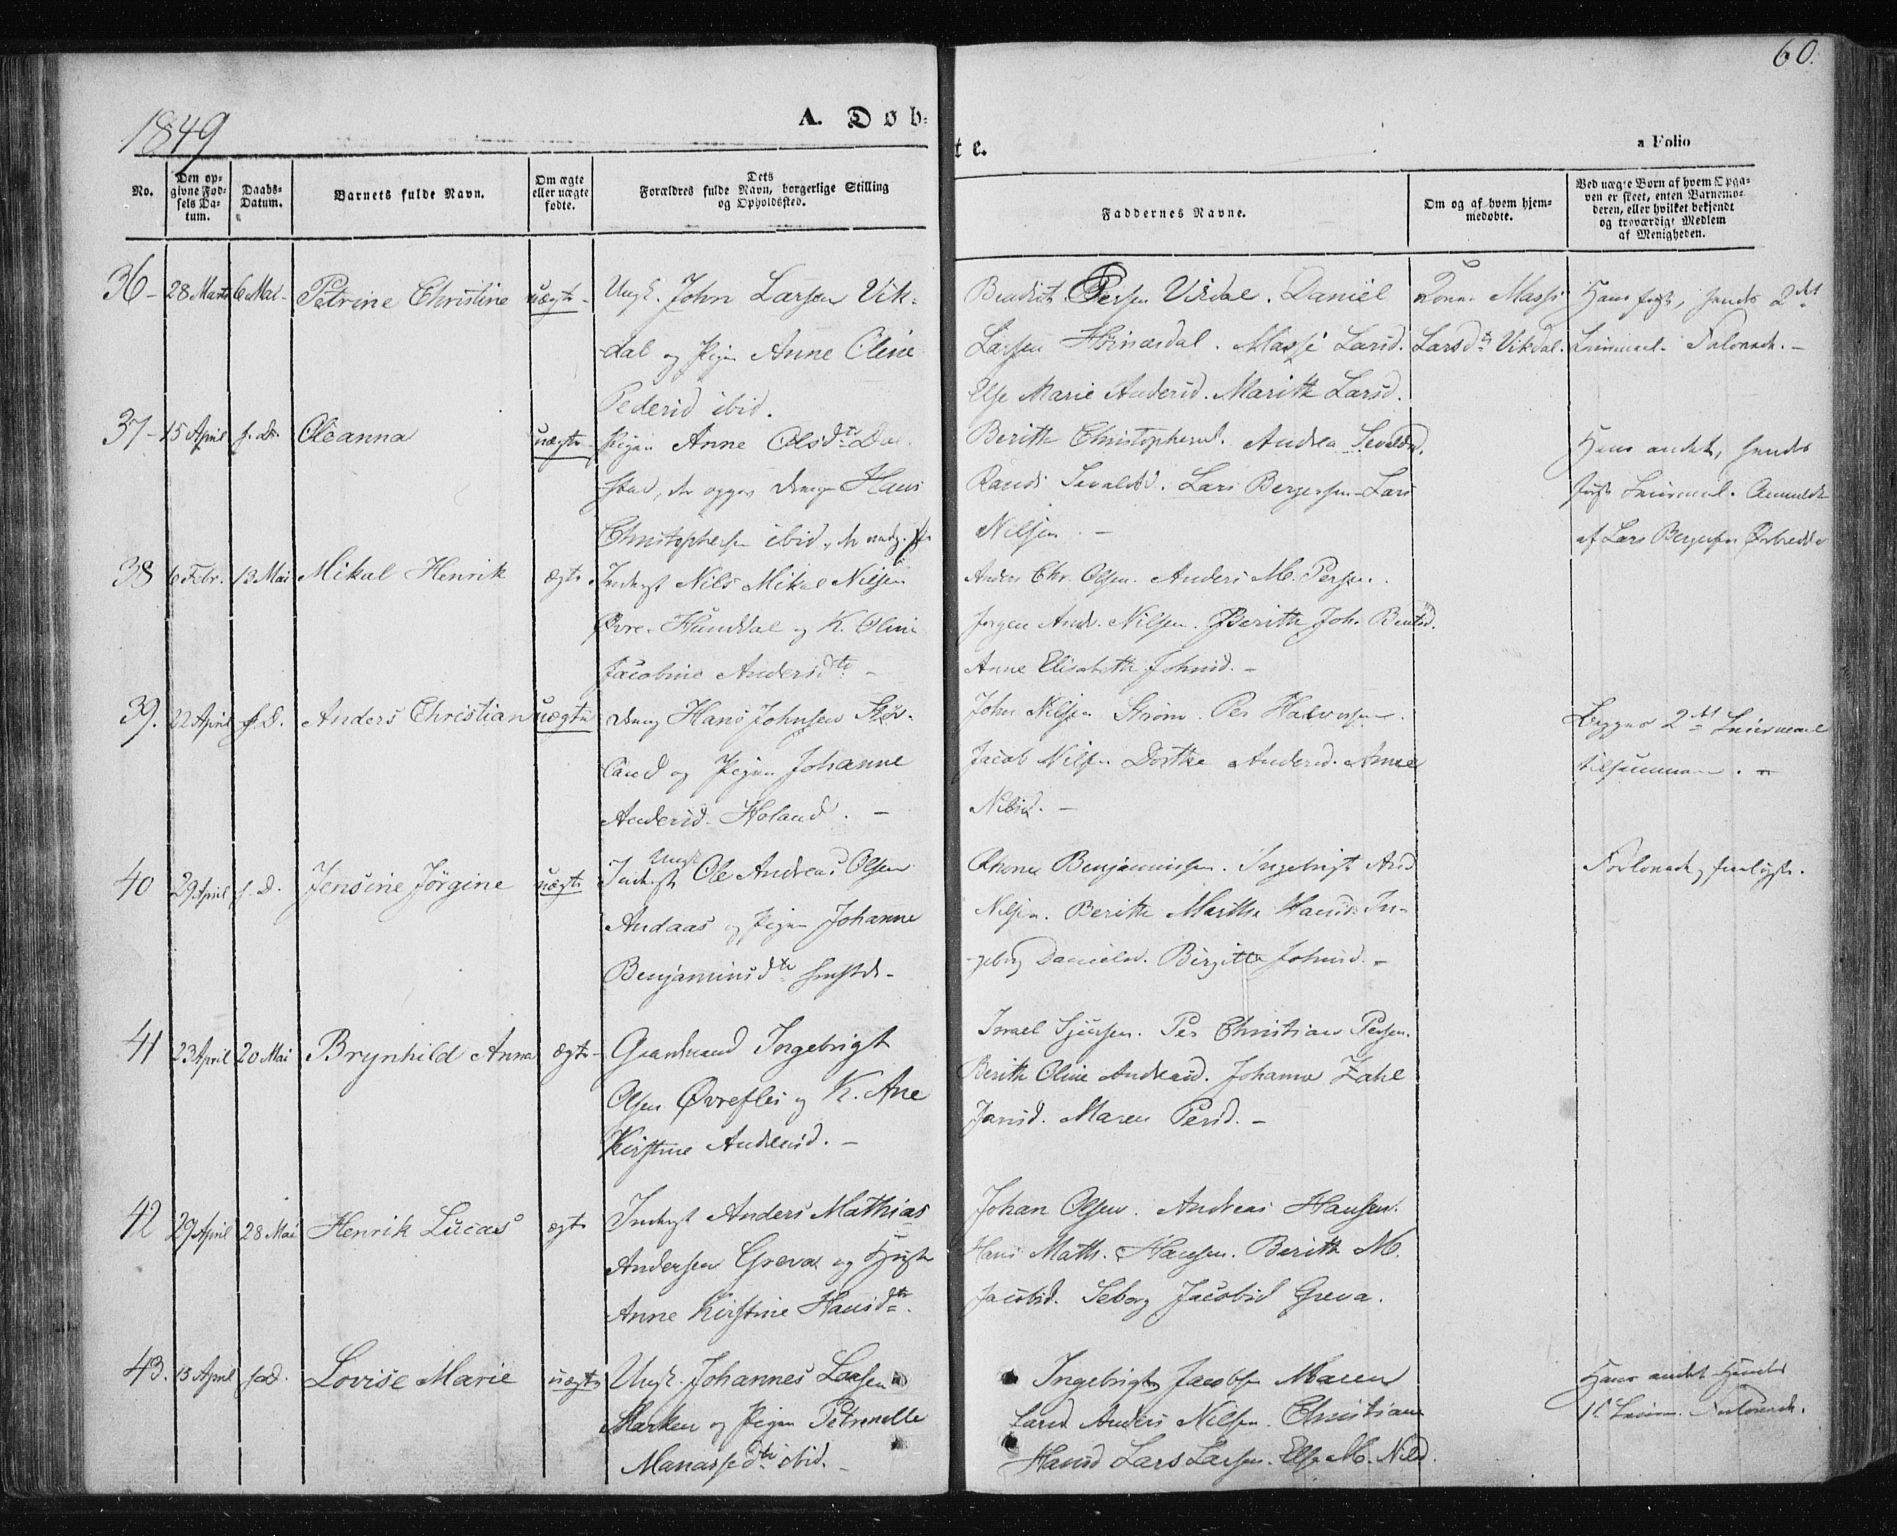 60.
1849
A. Døb-
te.
a Folio
No.
Den op-
givne Fød-
sels Da-
tum.
Daabs-
Datum.
Barnets fulde Navn.
Om ægte
eller uægte
fødte.
Dets
Forældres fulde Navn, borgerlige Stilling
og Opholdssted.
Faddernes Navne.
Om og af hvem hjem-
medøbte.
Ved uægte Børn af hvem Opga-
ven er skeet, enten Barnemo-
deren, eller hvilket bekjendt
og troværdigt Medlem
af Menigheden.
36 - 28 Marts 6 Mai - Petrine Christine uægte - Ungk. John Larsen Vik-
dal og Pigen Anne Oline
Pedersd ibid.
Persen Virdal. Daniel
Larsen . Massi Larsd.
Else Marie Andersd. Marith Larsd.
Massi
Larsdtr Vikdal.
Hans første, hendes 2det
Leiermaal. -
37 - 15 April s. D. Oleanna uægte - Pigen Anne Olsdtr Dal-
stad, der opgav Dreng Hans
Christophersen ibid.
Berith Christophersd. Andrea Sevaldsd.
Randi Sevaldsd. Lars Bergersen - Lars
Nilsen. -
Hans andet, hendes
første Leiermaal. Anmeldt
af Lars Bergersen
38 6 Febr. 13 Mai Mikal Henrik ægte. Inderst Nils Mikal Nilsen
Øvre Hunddal og K. Oline
Jacobine Andersdtr -
Anders Chr. Olsen. Anders M. Persen.
Jørgen Andr. Nilsen. Berith Joh. Bentsd.
Anne Elisabeth Johnsd. -
39. 22 April s. D. Anders Christian uægte Dreng Hans Johnsen
land og Pigen Johanne
Andersd. Holand. -
John Nilsen Strøm. Per Halvorsen.
Jacob Nilsen Dorthe Andersd. Anne
Nilsd. -
Begges 2det Leiermaal
tilsammen. -
40 29 April s. D. Jensine Jörgine uægte Inderst Ungk. Ole Andreas Olsen
Andaas og Pigen Johanne
Benjaminsdtr
Benjaminsen. Ingebrigt And
Nilsen. Berith Martha Hansd. In-
geborg Danielsd. Birgitte Johnsd. -
41 23 April 20 Mai Brynhild Anna ægte - Gaardmand Ingebrigt
Olsen Øvreflei og K. Ane
Kirstine Andersd. -
Israel Sjursen. Per Christian Persen.
Berith Oline Andersd. Johanna Zahl
Jansd. Maren Persd. -
42 29 April 28 Mai Henrik Lucas ægte Inderst Anders Mathias
Andersen Greva og Hust
Anne Kirstine Hansdtr.
Johan Olsen. Andreas Hansen.
Hans Math. Hansen. Berith M.
Jacobsd. Seborg Jacobsd Greva.
43. 15 April s. D. Lovise Marie uægte Ungk. Johannes Larsen
Marken og Pigen Petronelle
Manassedtr ibid. -
Ingebrigt Jacobsen Maren
Larsd Anders Nilsen. Christiane
Hansd Lars Larsen. Else M. Nilsd.
Hans andet Hendes
1ste Leierm.